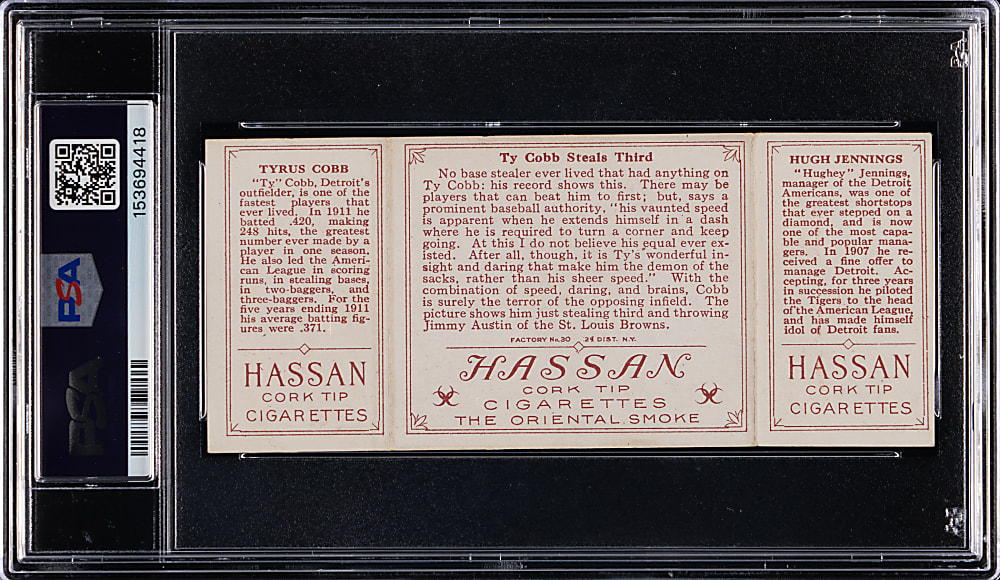 153694418
PSA
PSA
TYRUS COBB
"Ty" Cobb, Detroit's
outfielder, is one of the
fastest players that
ever lived. In 1911 he
batted .420, making
248 hits, the greatest
number ever made by a
player in one season.
He also led the Ameri-
can League in scoring
runs, in stealing bases,
in two-baggers, and
three-baggers. For the
five years ending 1911
his average batting fig-
ures were .371.
HASSAN
CORK TIP
CIGARETTES
Ty Cobb Steals Third
No base stealer ever lived that had anything on
Ty Cobb: his record shows this. There may be
players that can beat him to first; but, says a
prominent baseball authority, "his vaunted speed
is apparent when he extends himself in a dash
where he is required to turn a corner and keep
going. At this I do not believe his equal ever ex-
isted. After all, though, it is Ty's wonderful in-
sight and daring that make him the demon of the
sacks, rather than his sheer speed." With the
combination of speed, daring, and brains, Cobb
is surely the terror of the opposing infield. The
picture shows him just stealing third and throwing
Jimmy Austin of the St. Louis Browns.
FACTORY No. 30 2d DIST. N.Y.
HASSAN
CORK TIP
CIGARETTES
THE ORIENTAL SMOKE
HUGH JENNINGS
"Hughey" Jennings,
manager of the Detroit
Americans, was one of
the greatest shortstops
that ever stepped on a
diamond, and is now
one of the most capa-
ble and popular mana-
gers. In 1907 he re-
ceived a fine offer to
manage Detroit. Ac-
cepting, for three years
in succession he piloted
the Tigers to the head
of the American League,
and has made himself
idol of Detroit fans.
HASSAN
CORK TIP
CIGARETTES